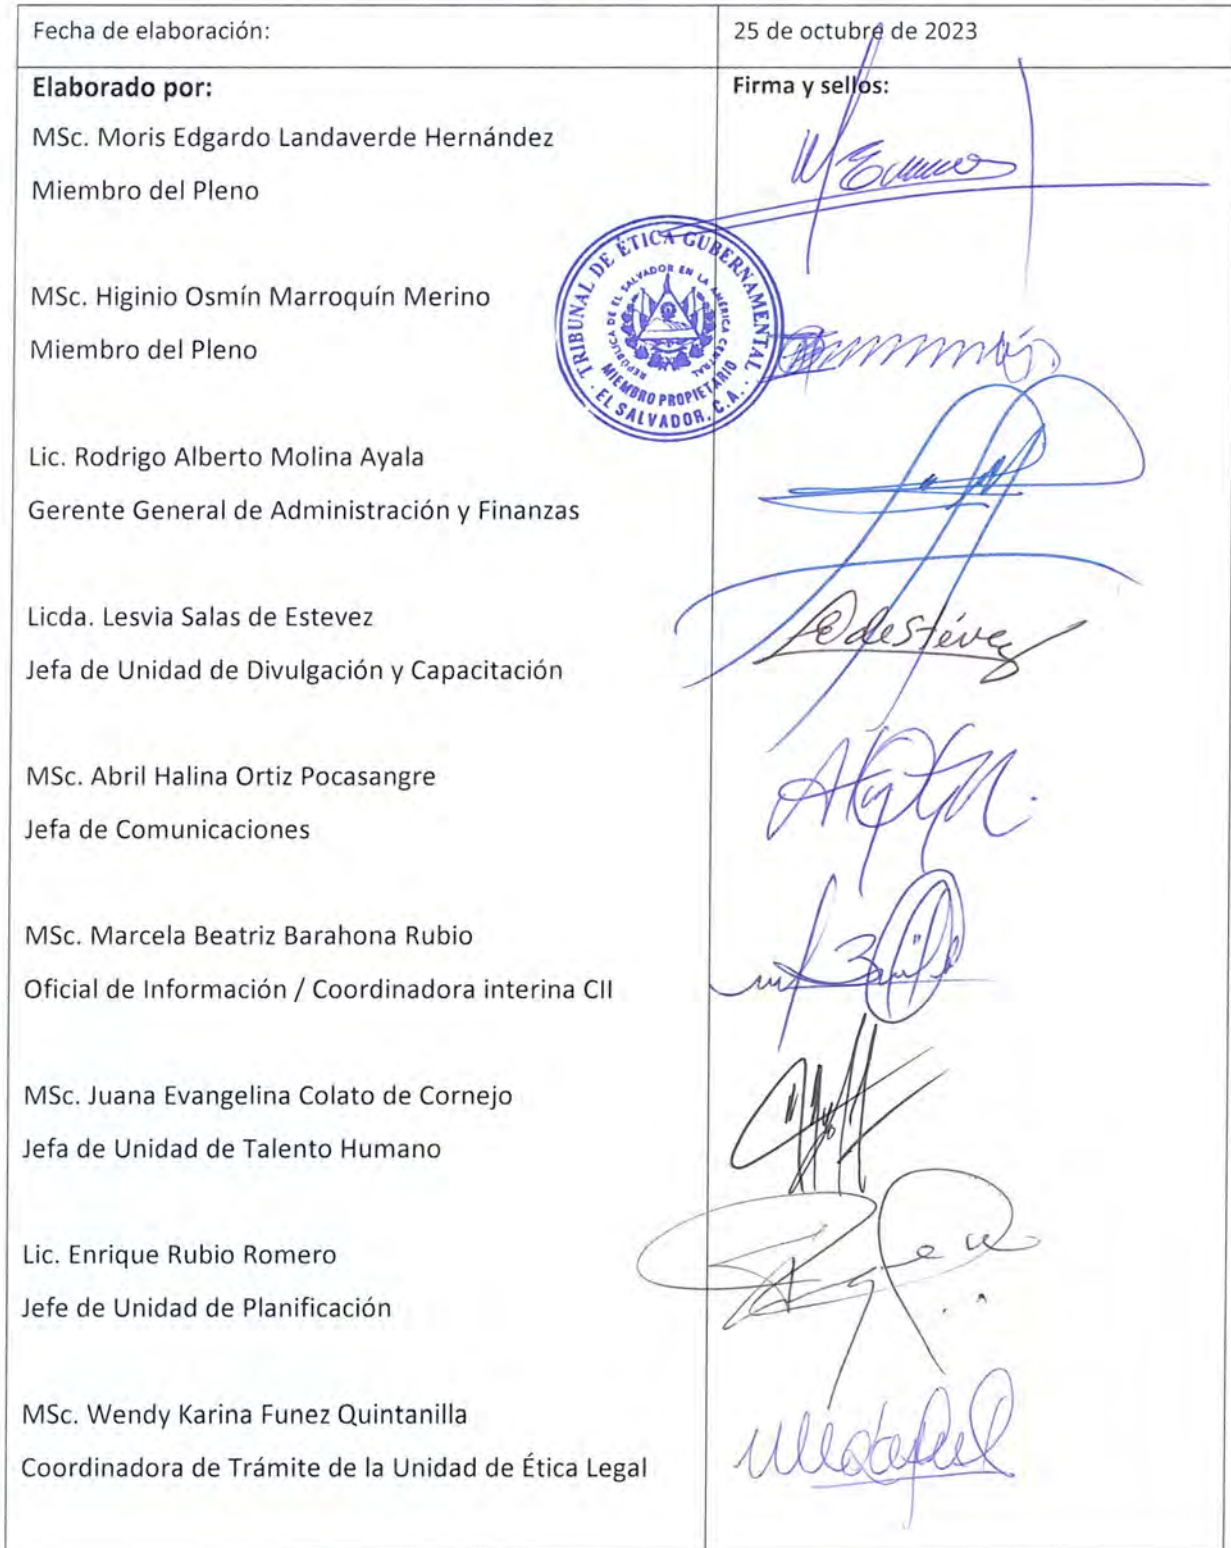 Fecha de elaboración: 25 de octubre de 2023
Elaborado por: Firma y sellos:
MSc. Moris Edgardo Landaverde Hernández
Miembro del Pleno
TRIBUNAL DE ÉTICA GUBERNAMENTAL
REPÚBLICA DE EL SALVADOR EN LA AMÉRICA CENTRAL
MIEMBRO PROPIETARIO
EL SALVADOR, C.A.
MSc. Higinio Osmín Marroquín Merino
Miembro del Pleno
Lic. Rodrigo Alberto Molina Ayala
Gerente General de Administración y Finanzas
Licda. Lesvia Salas de Estevez
Jefa de Unidad de Divulgación y Capacitación
MSc. Abril Halina Ortiz Pocasangre
Jefa de Comunicaciones
MSc. Marcela Beatriz Barahona Rubio
Oficial de Información / Coordinadora interina CII
MSc. Juana Evangelina Colato de Cornejo
Jefa de Unidad de Talento Humano
Lic. Enrique Rubio Romero
Jefe de Unidad de Planificación
MSc. Wendy Karina Funez Quintanilla
Coordinadora de Trámite de la Unidad de Ética Legal